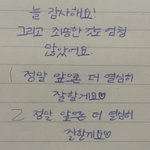 늘 감사해요!
그리고 죄송한 것도 엄청
많았어요
1 정말 앞으론 더 열심히
잘할게요♡
2 정말 앞으론 더 열심히
잘할게요♡